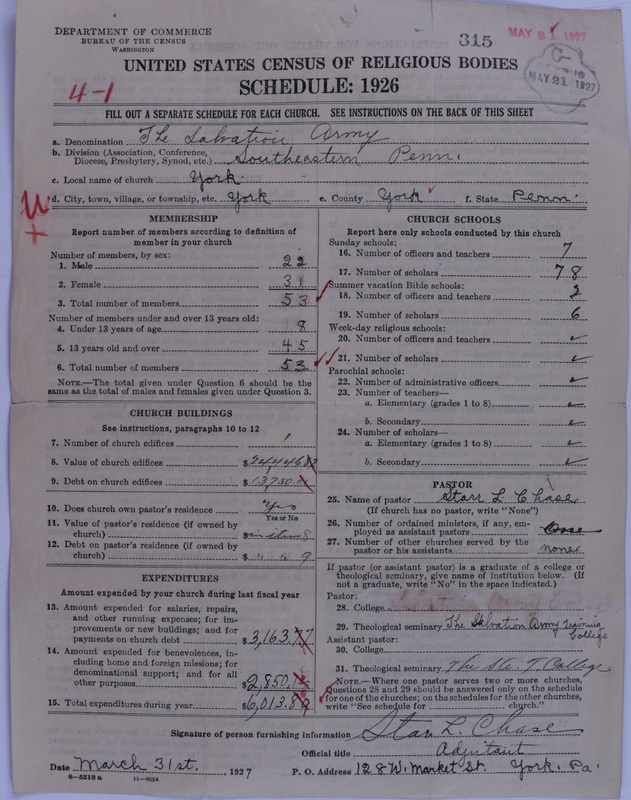 DEPARTMENT OF COMMERCE
BUREAU OF THE CENSUS
WASHINGTON
315
MAY 21 1927
MAY 21 1927
UNITED STATES CENSUS OF RELIGIOUS BODIES
SCHEDULE: 1926
4-1
FILL OUT A SEPARATE SCHEDULE FOR EACH CHURCH. SEE INSTRUCTIONS ON THE BACK OF THIS SHEET
a. Denomination The Salvation Army
b. Division (Association, Conference, Diocese, Presbytery, Synod, etc.) Southeastern Penn.
c. Local name of church York
d. City, town, village, or township, etc. York e. County York f. State Penn.
MEMBERSHIP
Report number of members according to definition of
member in your church
Number of members, by sex:
1. Male 22
2. Female 31
3. Total number of members 53
Number of members under and over 13 years old:
4. Under 13 years of age 8
5. 13 years old and over 45
6. Total number of members 53
NOTE.—The total given under Question 6 should be
same as the total of males and females given under Question 3.
CHURCH BUILDINGS
See instructions, paragraphs 10 to 12
7. Number of church edifices 1
8. Value of church edifices $
9. Debt on church edifices $
10. Does church own pastor's residence Yes
Yes or No
11. Value of pastor's residence (if owned by
church) $
12. Debt on pastor's residence (if owned by
church) $ " "
EXPENDITURES
Amount expended by your church during last fiscal year
13. Amount expended for salaries, repairs,
and other running expenses; for im-
provements or new buildings; and for
payments on church debt $3,163.77
14. Amount expended for benevolences, in-
cluding home and foreign missions; for
denominational support; and for all
other purposes $2,850.12
15. Total expenditures during year $6,013.89
CHURCH SCHOOLS
Report here only schools conducted by this church
Sunday schools:
16. Number of officers and teachers 7
17. Number of scholars 78
Summer vacation Bible schools:
18. Number of officers and teachers 2
19. Number of scholars 6
Week-day religious schools:
20. Number of officers and teachers
21. Number of scholars
Parochial schools:
22. Number of administrative officers
23. Number of teachers—
a. Elementary (grades 1 to 8)
b. Secondary
24. Number of scholars—
a. Elementary (grades 1 to 8)
b. Secondary
PASTOR
25. Name of pastor Starr L Chase
(If church has no pastor, write "None")
26. Number of ordained ministers, if any, em-
ployed as assistant pastors
27. Number of other churches served by the
pastor or his assistants none
If pastor (or assistant pastor) is a graduate of a college or
theological seminary, give name of institution below. (If
not a graduate, write "No" in the space indicated.)
Pastor:
28. College
29. Theological seminary The Salvation Army Training College
Assistant pastor:
30. College
31. Theological seminary The Sa. T. College
NOTE.—Where one pastor serves two or more churches,
Questions 28 and 29 should be answered only on the schedule
for one of the churches; on the schedules for the other churches,
write "See schedule for church."
Signature of person furnishing information Starr L. Chase
Official title Adjutant
Date March 31st., 1927 P. O. Address 128 W. Market St. York. Pa.
8-5518 a 11-9034